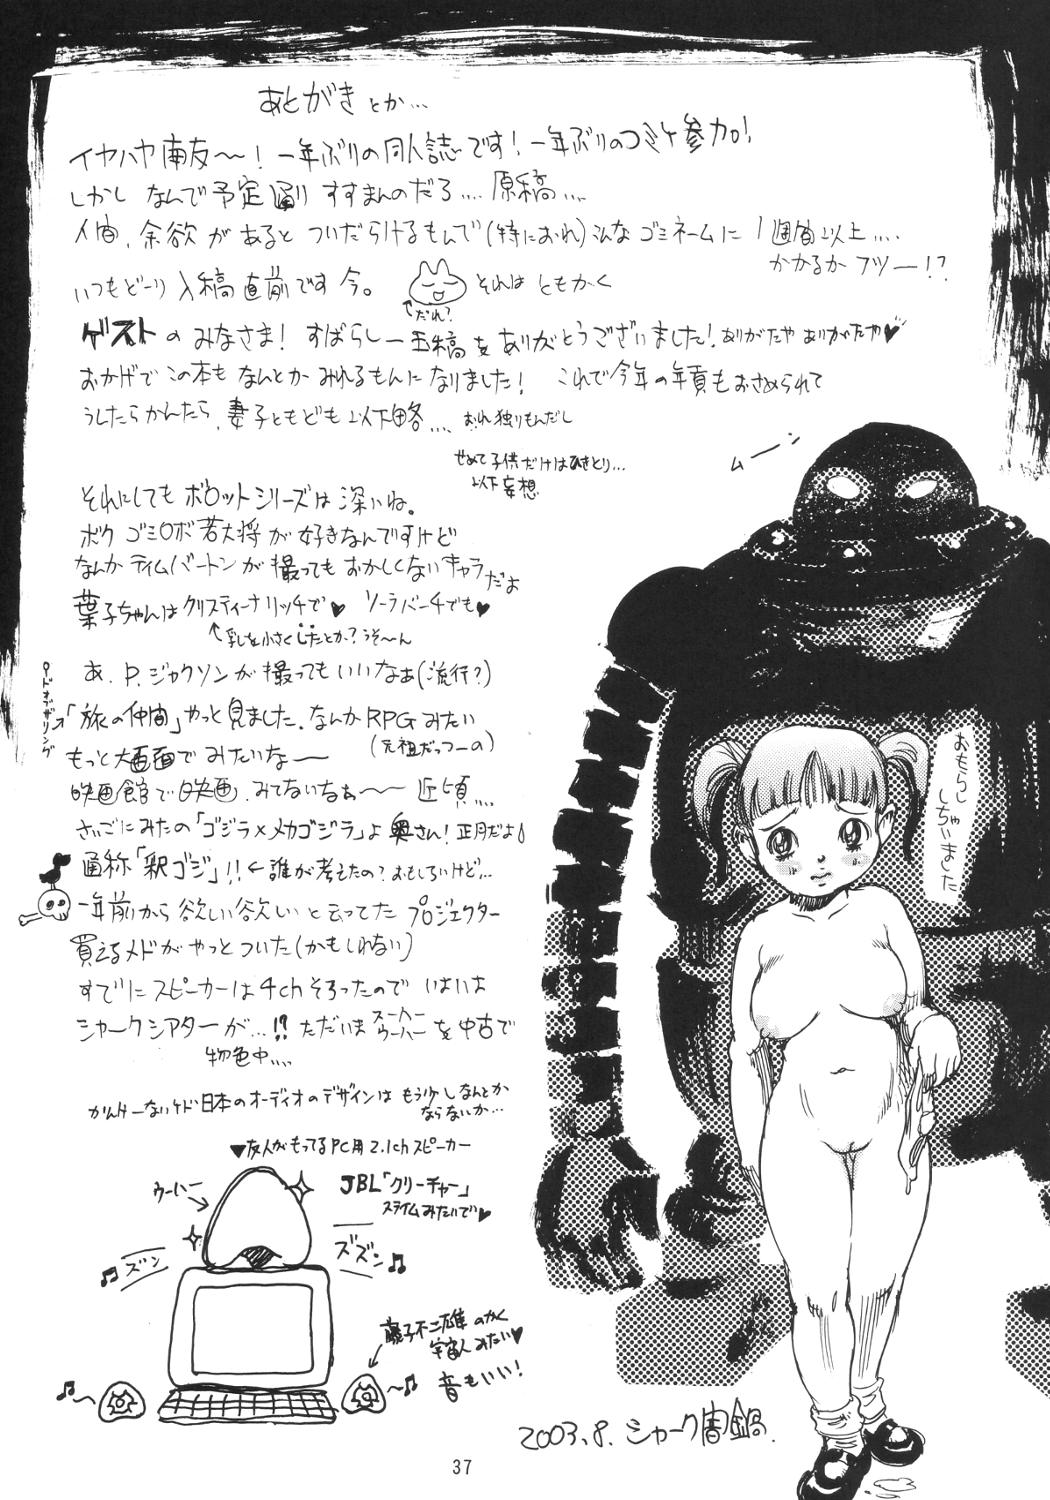 あとがきとか…
イヤハヤ南友〜!一年ぶりの同人誌です!一年ぶりのコミケ参加!
しかし なんで予定通り すすまんのだろ….原稿….
人間、余欲が あると ついだらけるもんで(特におれ)こんな ゴミネームに 1週間以上….
かかるか フツー!?
いつもどーり 入稿直前です 今。
それは ともかく
だれ?
ゲストの みなさま! すばらしー玉稿を ありがとうございました!ありがたや ありがたや♥
おかげで この本も なんとか みれるもんに なりました! これで今年の年貢もおさめられて
うしたらかんたら、妻子ともども 以下略….
おれ独りもんだし
せめて子供だけはひきとり…
以下妄想
それにしても ボロットシリーズは 深いね。
ボク ゴミロボ若大将が好きなんですけど
なんか ティムバートンが撮っても おかしくないキャラだよ
葉子ちゃんは クリスティーナリッチで♥ ソーラバーチでも♥
↑乳を小さくしたとか?うそ〜ん
あ、P.ジャクソンが撮ってもいいなぁ(流行?)
ロードオブザリング
→「旅の仲間」やっと見ました、なんか RPGみたい
(元祖だっつーの)
もっと大画面で みたいな〜
映画館で映画、みてないなぁ〜〜 近頃….
さいごにみたの「ゴジラ×メカゴジラ」よ 奥さん!正月だよ!
通称「釈ゴジ」!!←誰が考えたの?おもしろいけど….
一年前から 欲しい欲しい と云ってた プロジェクター
買えるメドが やっとついた(かもしれない)
すでに スピーカーは 4ch そろったので いよいよ
シャークシアターが…!? ただいま スーパーウーハーを中古で
物色中….
かんけーないケド 日本のオーディオのデザインは もう少しなんとか
ならないか…
▼友人がもってるPC用 2.1ch スピーカー
JBL「クリーチャー」
スライムみたいで♥
ウーハー
ズズン
ズン
藤子不二雄のかく
宇宙人みたい♥
音もいい!
ムーン
おもらし
しちゃいました
2003.8. シャーク闇鍋.
37